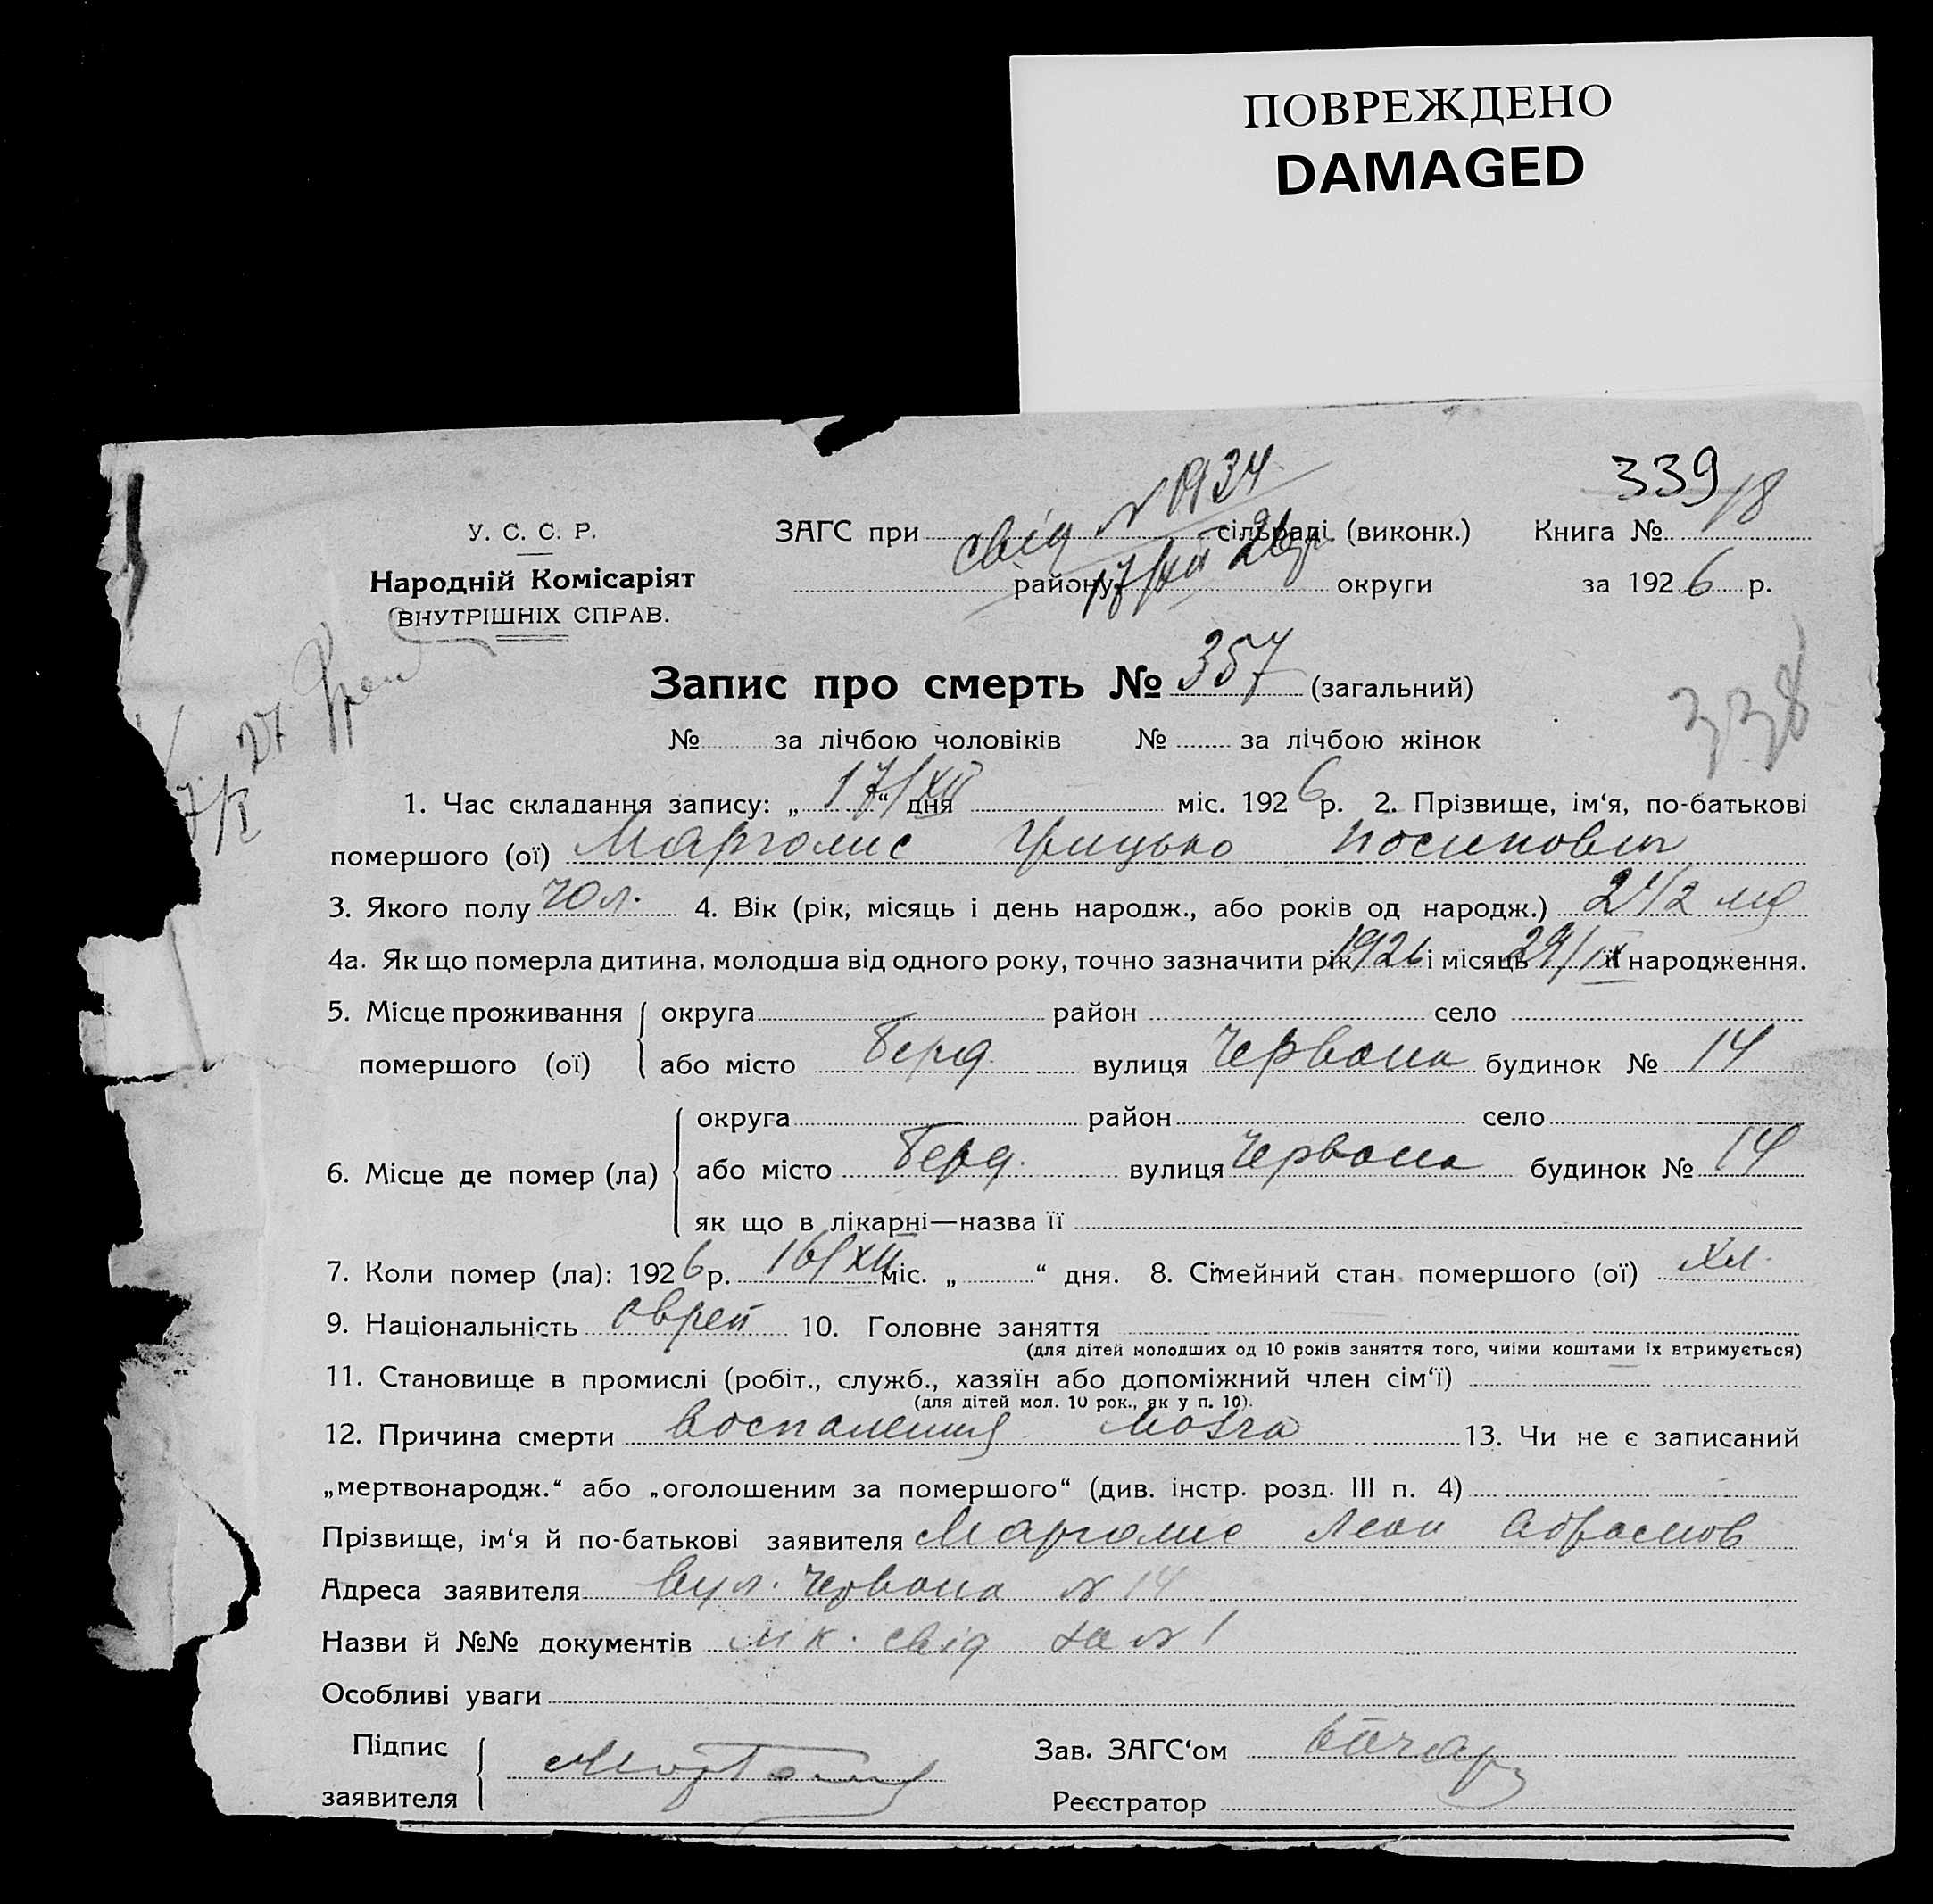 ПОВРЕЖДЕНО
DAMAGED
339
У. С. С. Р.
Народній Комісаріят
ВНУТРІШНІХ СПРАВ.
ЗАГС при свід N 1934 сільраді (виконк.) Книга № 18
району 17/XII 26 р округи за 1926 р.
Запис про смерть № 357 (загальний)
338
№ за лічбою чоловіків № за лічбою жінок
1. Час складання запису: „17/XII“ дня міс. 1926 р. 2. Прізвище, ім‘я, по-батькові
помершого (ої) Марголис Грицько Йосипович
3. Якого полу чол. 4. Вік (рік, місяць і день народж., або років од народж.) 2 1/2 мц
4а. Як що померла дитина, молодша від одного року, точно зазначити рік 1926 і місяць 29/IX її народження.
5. Місце проживання округа район село
помершого (ої) або місто Берд. вулиця Червона будинок № 14
округа район село
6. Місце де помер (ла) або місто Берд. вулиця Червона будинок № 14
як що в лікарні—назва її
7. Коли помер (ла): 1926 р. 16/XII міс. „ “ дня. 8. Сімейний стан помершого (ої) хл.
9. Національність єврей 10. Головне заняття
(для дітей молодших од 10 років заняття того, чиїми коштами їх втримується)
11. Становище в промислі (робіт., служб., хазяїн або допоміжний член сім‘ї)
(для дітей мол. 10 рок., як у п. 10).
12. Причина смерти воспаления мозга 13. Чи не є записаний
„мертвонародж.“ або „оголошеним за помершого“ (див. інстр. розд. III п. 4)
Прізвище, ім‘я й по-батькові заявителя Марголис Леон Абрамов
Адреса заявителя вул. Червона N 14
Назви й №№ документів лік. свід за N 1
Особливі уваги
Підпис
заявителя
Зав. ЗАГС‘ом
Реєстратор